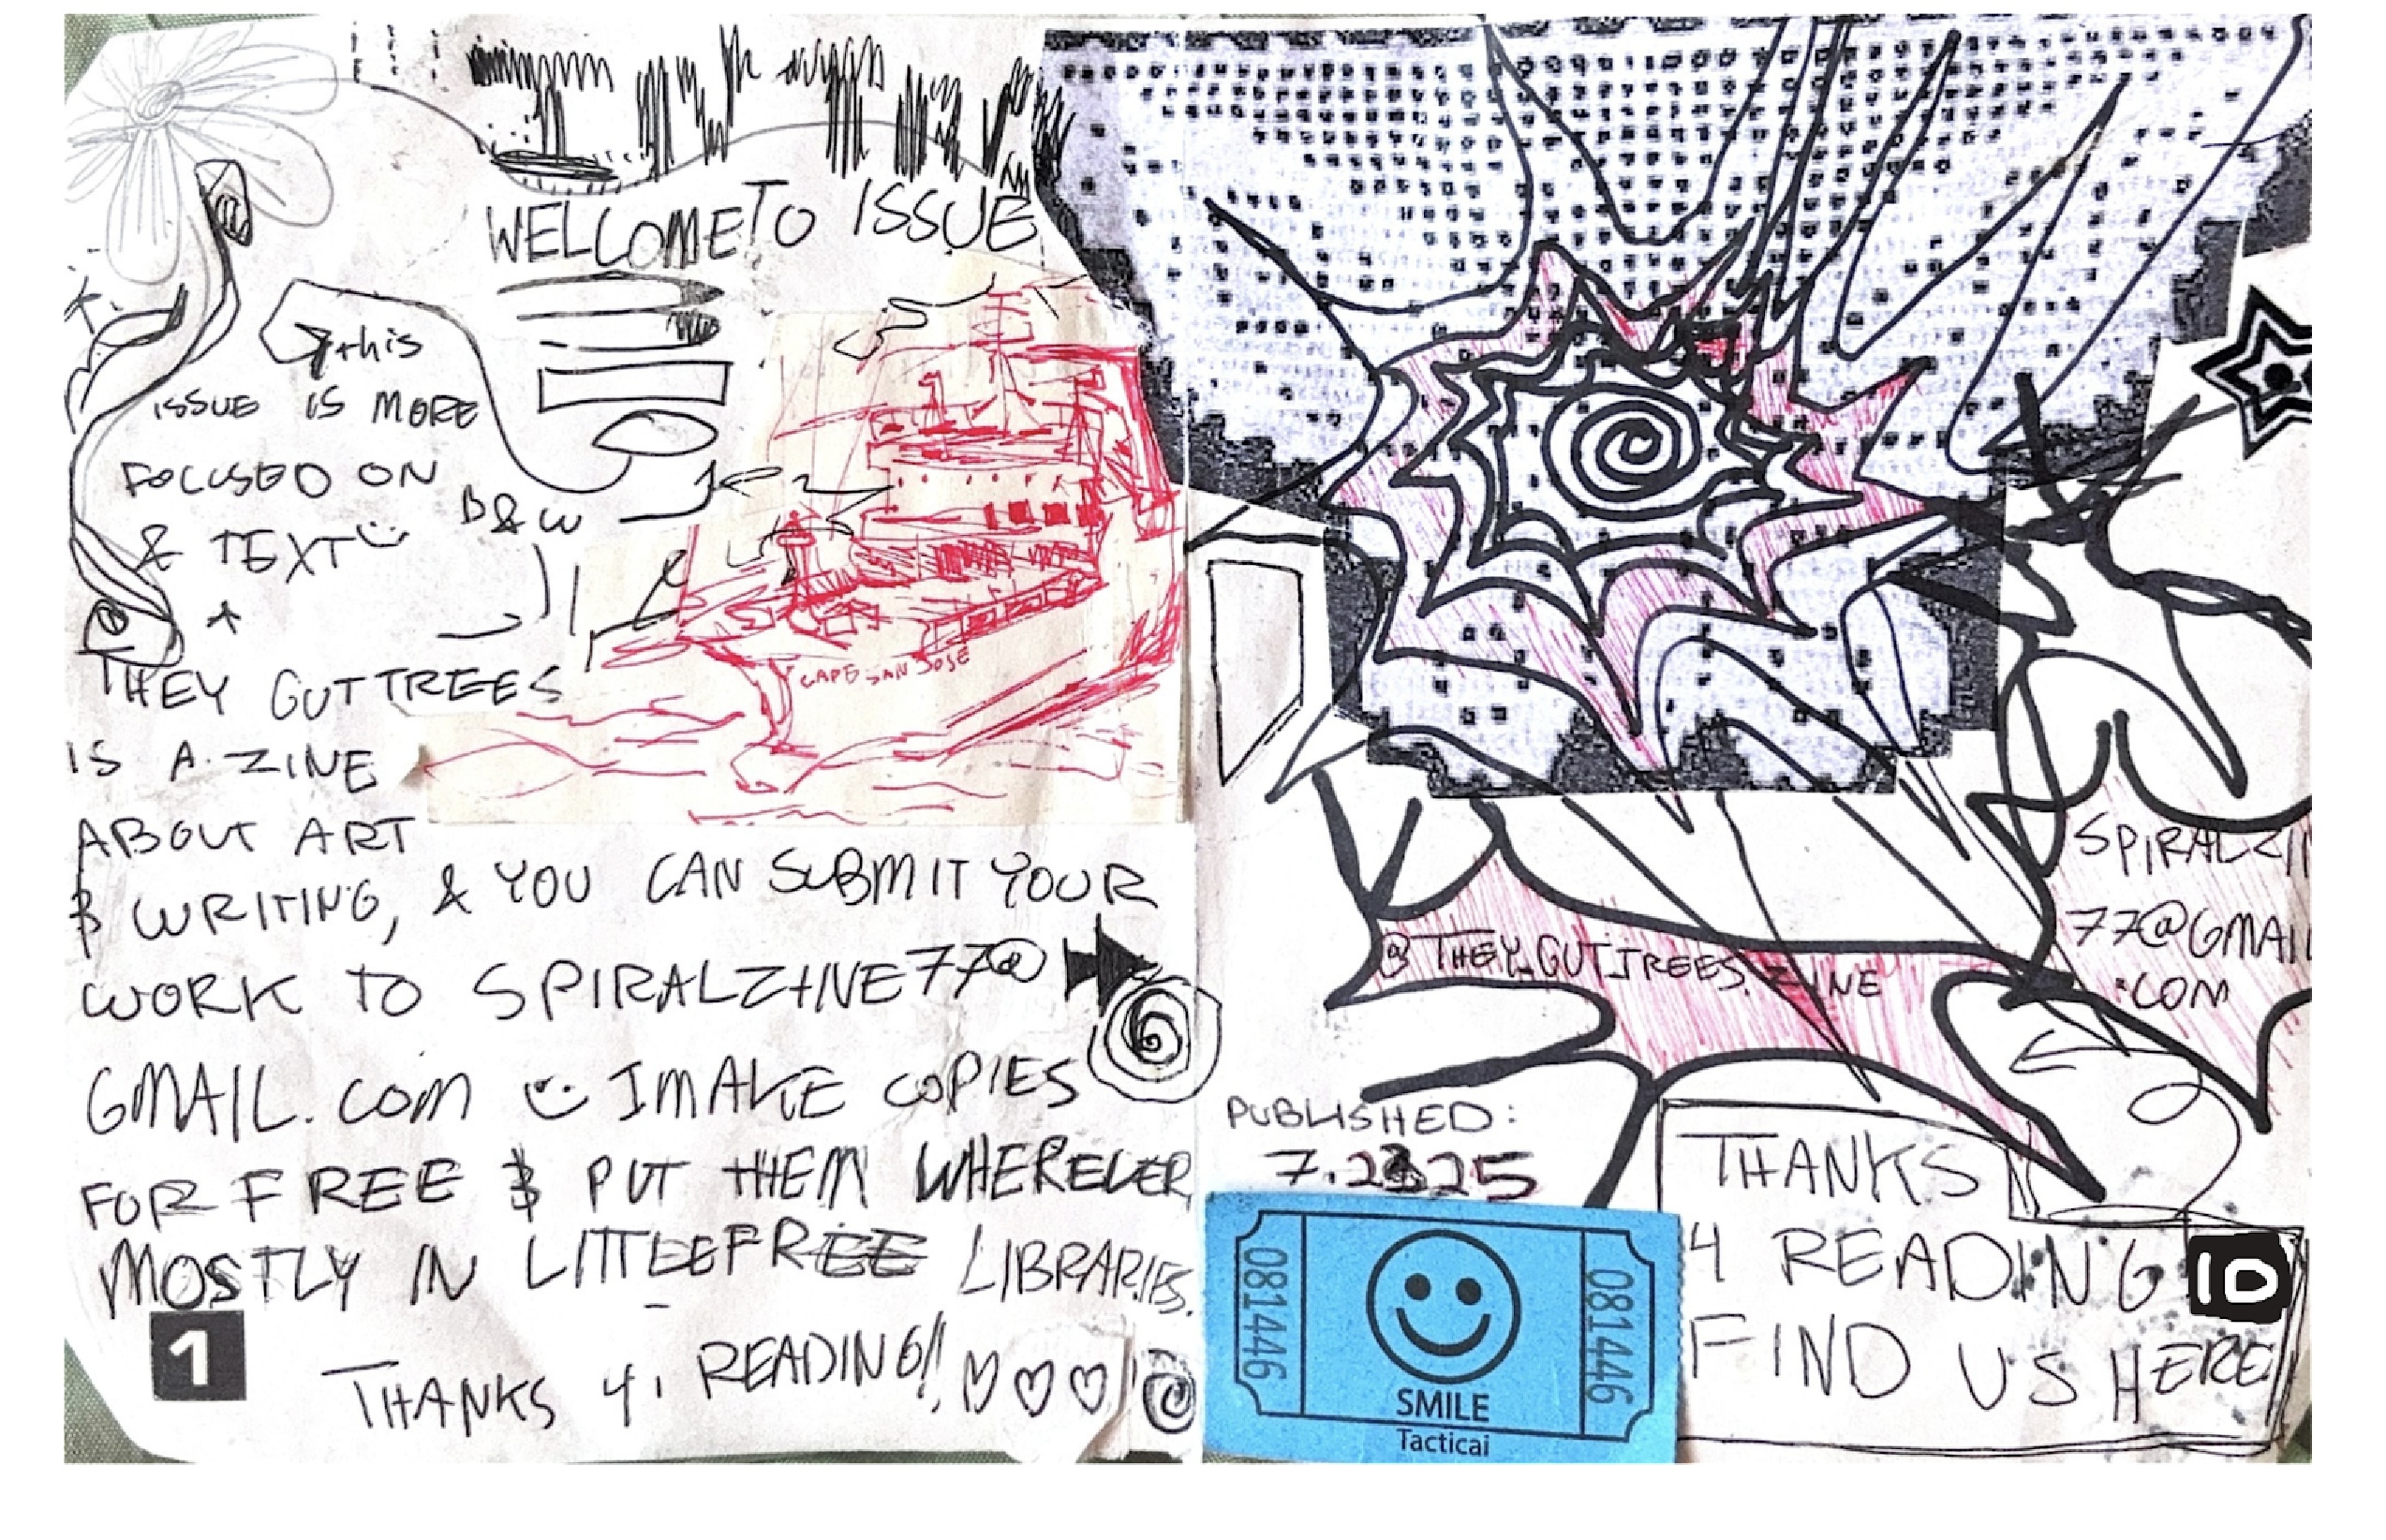 WELLCOME TO ISSUE
this
ISSUE IS MORE
FOCUSED ON
B&W
& TEXT
THEY GUT TREES
IS A ZINE
ABOUT ART
& WRITING, & YOU CAN SUBMIT YOUR
WORK TO SPIRALZINE77@
GMAIL.COM I MAKE COPIES
FOR FREE & PUT THEM WHEREVER
MOSTLY IN LITTLEFREE LIBRARIES.
THANKS 4 READING!!
1
CAPE SAN JOSE
@THEY_GUT_TREES.ZINE
SPIRALZIN
77@GMAIL
.COM
PUBLISHED:
081446
SMILE
Tacticai
081446
THANKS
4 READING
FIND US HERE
10